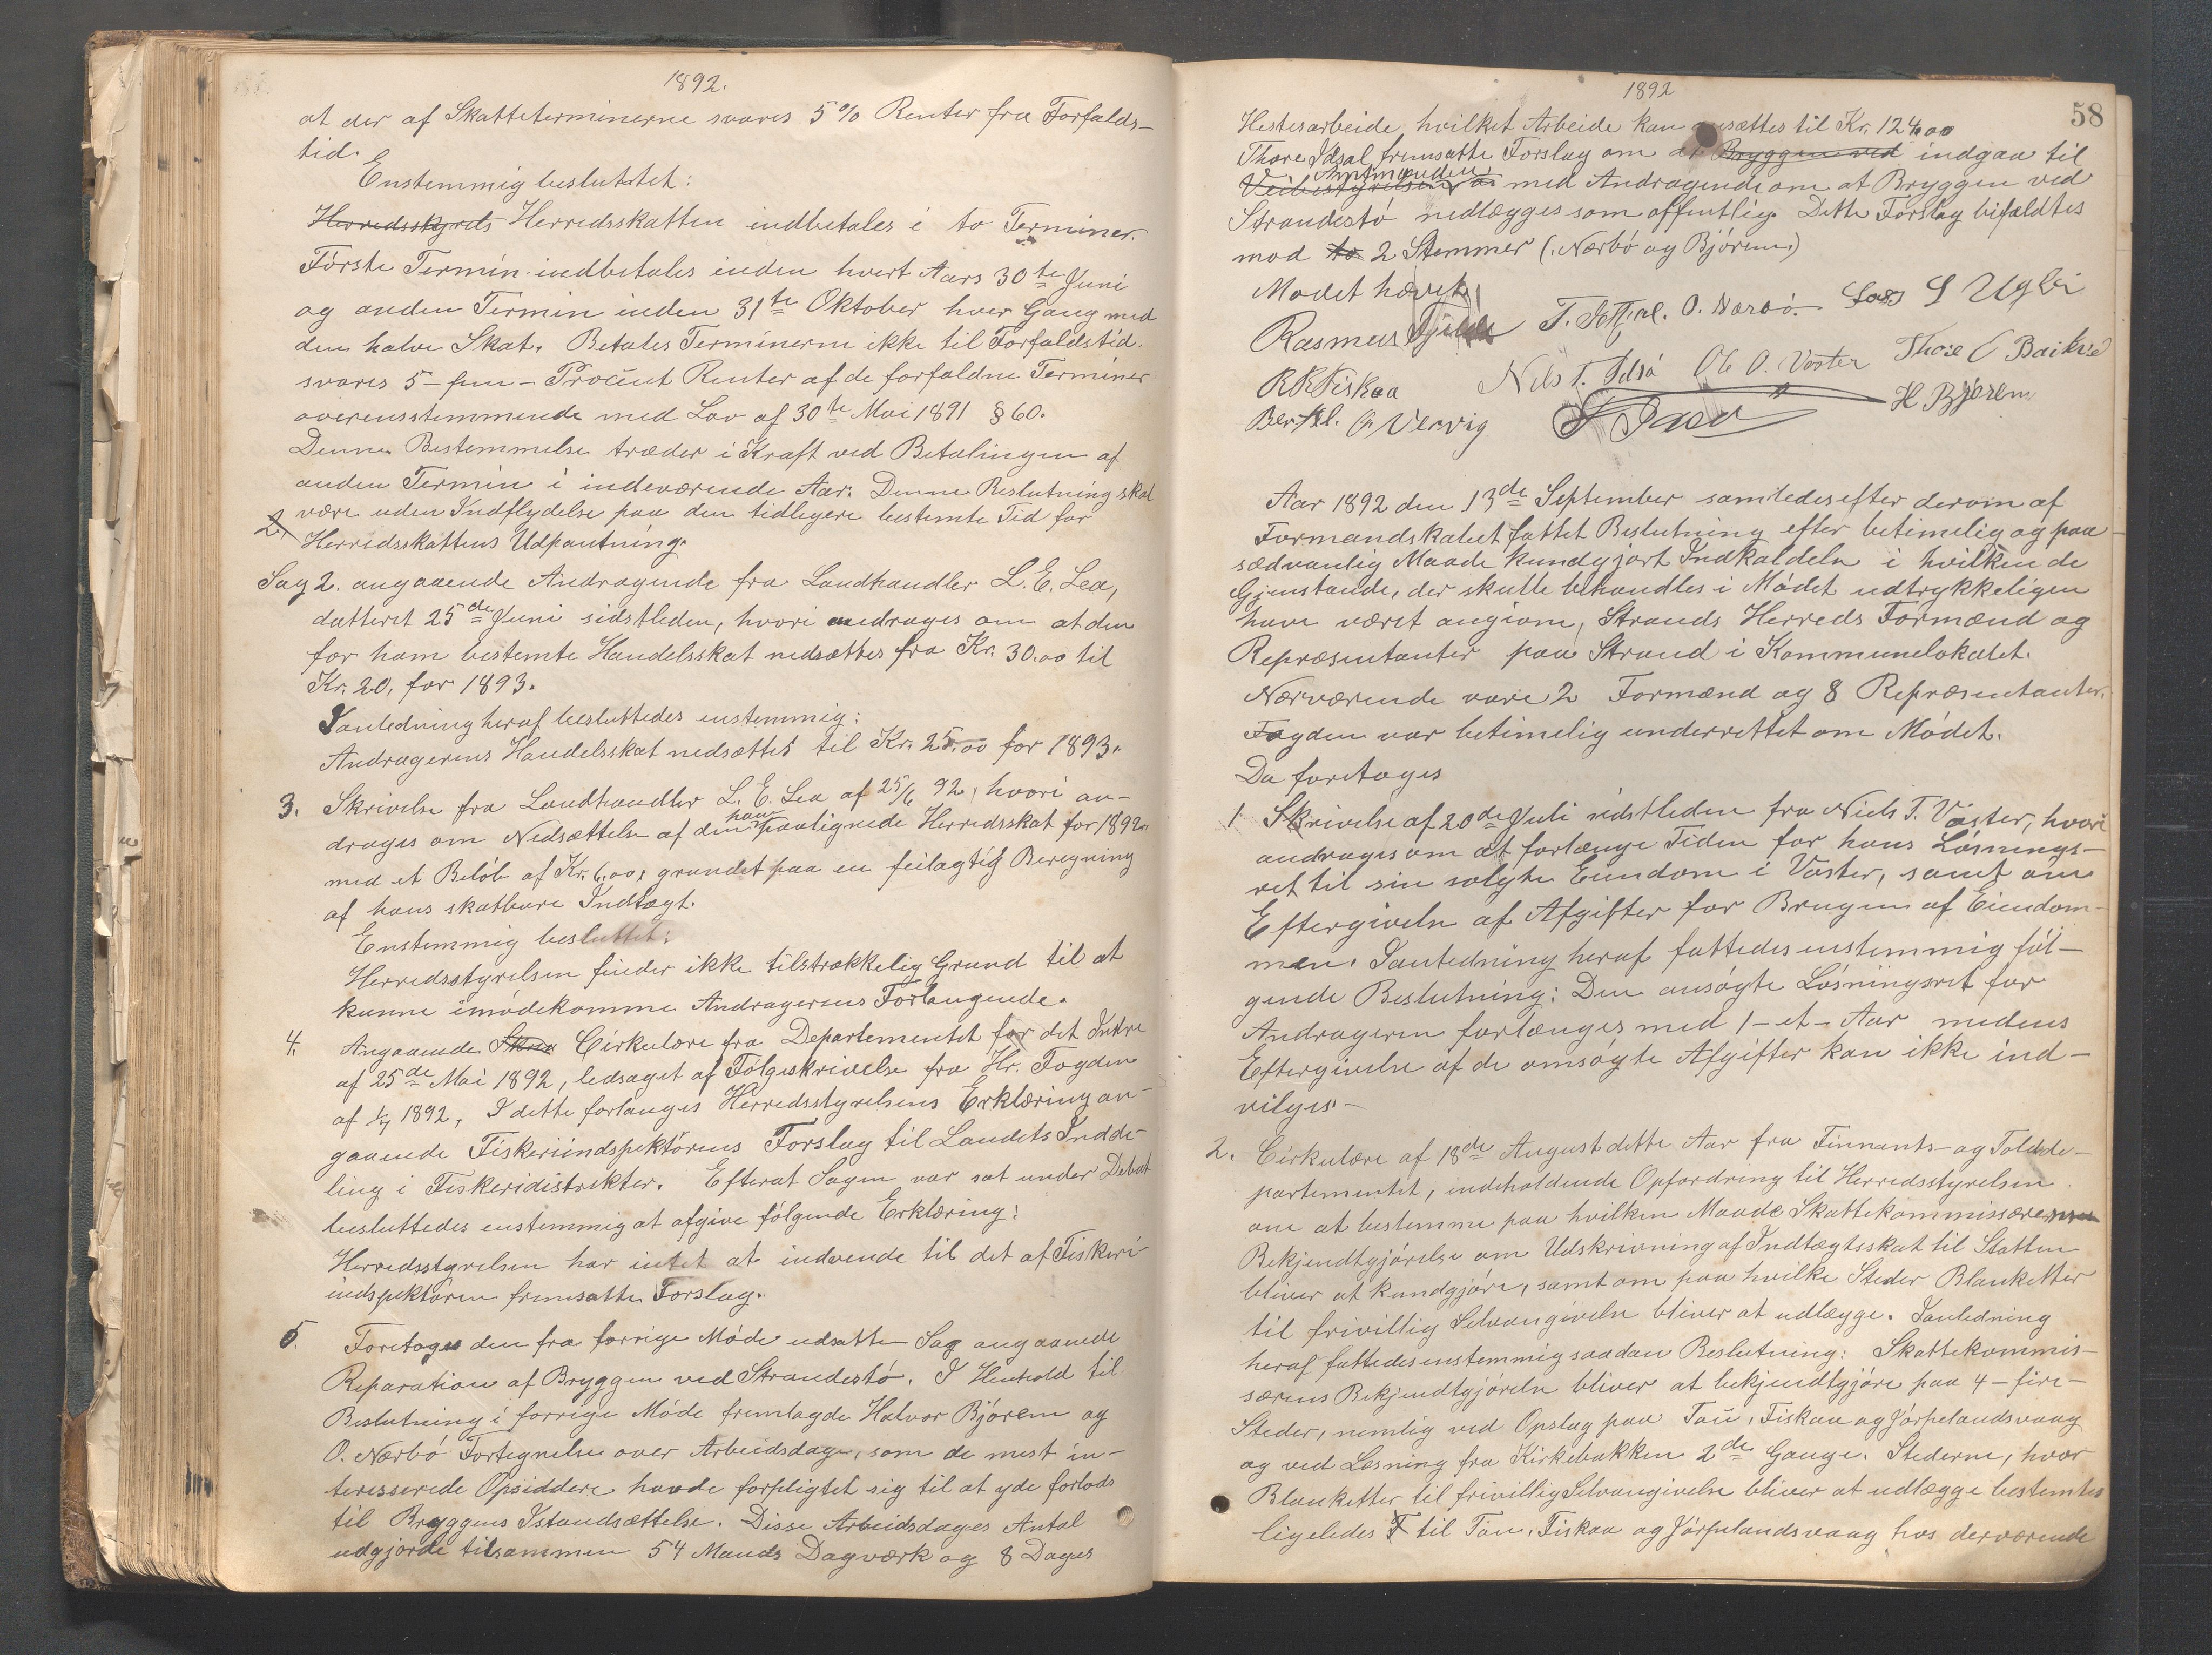 1892.
at der af Skatteterminerne svares 5% Renter fra Forfalds-
tid.
Enstemmig besluttet:
Herredsstyrels Herredsskatten indbetales i to Terminer.
Første Termin indbetales inden hvert Aars 30te Juni
og anden Termin inden 31te Oktober hver Gang med
den halve Skat. Betales Terminerne ikke til Forfaldstid.
svares 5-fem-Procent Renter af de forfaldne Terminer
overensstemmende med Lov af 30te Mai 1891 § 60.
Denne Bestemmelse træder i Kraft ved Betalingen af
anden Termin i indeværende Aar. Denne Beslutning skal
være uden Indflydelse paa den tidligere bestemte Tid for
2.
Herredsskattens Udpantning.
Sag 2. angaaende Andragende fra Landhandler L. E. Lea,
datteret 25de Juni sidstleden, hvori andrages om at den
for ham bestemte Handelsskat nedsættes fra Kr. 30.00 til
Kr. 20, for 1893.
Ianledning heraf besluttedes enstemmig:
Andragerens Handelsskat nedsættes til Kr. 25.00 for 1893.
3. Skrivelse fra Landhandler L. E. Lea af 25/6 92, hvori an-
drages om Nedsættelse af den ham paalignede Herredsskat for 1892
med et Beløb af Kr. 6.00, grundet paa en feilagtig Beregning
af hans skatbare Indtægt.
Enstemmig besluttet:
Herredsstyrelsen finder ikke tilstrækkelig Grund til at
kunne imødekomme Andragerens Forlangende.
4. Angaaende Skriv Cirkulære fra Departementet for det Indre
af 25de Mai 1892, ledsaget af Følgeskrivelse fra Hr. Fogden
af 1/7 1892, I dette forlanges Herredsstyrelsens Erklæring an-
gaaende Fiskeriindspektørens Forslag til Landets Indde-
ling i Fiskeridistrikter. Efterat Sagen var sat under Debat
besluttedes enstemmig at afgive følgende Erklæring:
Herredsstyrelsen har intet at indvende til det af Fiskeri-
indspektøren fremsatte Forslag.
5. Foretoges den fra forrige Møde udsatte Sag angaaende
Reparation af Bryggen ved Strandestø. I Henhold til
Beslutning i forrige Møde fremlagde Halvor Bjørem og
O. Nærbø Fortegnelse over Arbeidsdage, som de mest in-
teresserede Opsiddere havde forpligtet sig til at yde forlods
til Bryggens Istandsættelse. Disse Arbeidsdages Antal
udgjorde tilsammen 54 Mands Dagværk og 8 Dages
1892
58
Hestesarbeide, hvilket Arbeide kan ansættes til Kr. 124.00
Thore Idsal fremsatte Forslag om at Bryggen ved indgaa til
Amtmanden
Veibestyrelsen med Andragende om at Bryggen ved
Strandestø nedlægges som offentlig. Dette Forslag bifaldtes
mod to 2 Stemmer (Nærbø og Bjørem.)
Mødet hævet.
Rasmus T. O. Nærbø. Lars S Ugli
R R Fiskaa Nils T. Idsø Ole O. Voster Thore
Bertel. O Vervig H. Bjørem
Aar 1892 den 13de September samledes efter derom af
Formandskabet fattet Beslutning efter betimelig og paa
sædvanlig Maade kundgjort Indkaldelse i hvilken de
Gjenstande, der skulle behandles i Mødet udtrykkeligen
have været angivne, Strands Herreds Formænd og
Repræsentanter paa Strand i Kommunelokalet.
Nærværende vare 2 Formænd og 8 Repræsentanter.
Fogden var betimelig underrettet om Mødet.
Da foretoges
1 Skrivelse af 20de Juli sidstleden fra Niels T. Voster, hvori
andrages om at forlænge Tiden for hans Løsnings-
ret til sin solgte Eiendom i Voster, samt om
Eftergivelse af Afgifter for Brugen af Eiendom-
men. Ianledning heraf fattedes enstemmig føl-
gende Beslutning: Den ansøgte Løsningsret for
Andrageren forlænges med 1-et-Aar medens
Eftergivelse af de omsøgte Afgifter kan ikke ind-
vilges.-
2. Cirkulære af 18de August dette Aar fra Finnants- og Toldde-
partementet, indeholdende Opfordring til Herredsstyrelsen
om at bestemme paa hvilken Maade Skattekommissærens
Bekjendtgjørelse om Udskrivning af Indtægtsskat til Statten
bliver at kundgjøre, samt om paa hvilke Steder Blanketter
til frivillig Selvangivelse bliver at udlægge. Ianledning
heraf fattedes enstemmig saadan Beslutning: Skattekommis-
særens Bekjendtgjørelse bliver at bekjendtgjøre paa 4-fire-
Steder, nemlig ved Opslag paa Tau, Fiskaa og Jørpelandsvaag
og ved Læsning fra Kirkebakken 2de Gange. Stederne, hvor
Blanketter til frivillig Selvangivelse bliver at udlægge bestemtes
ligeledes F til Tau, Fiskaa og Jørpelandsvaag hos derværende